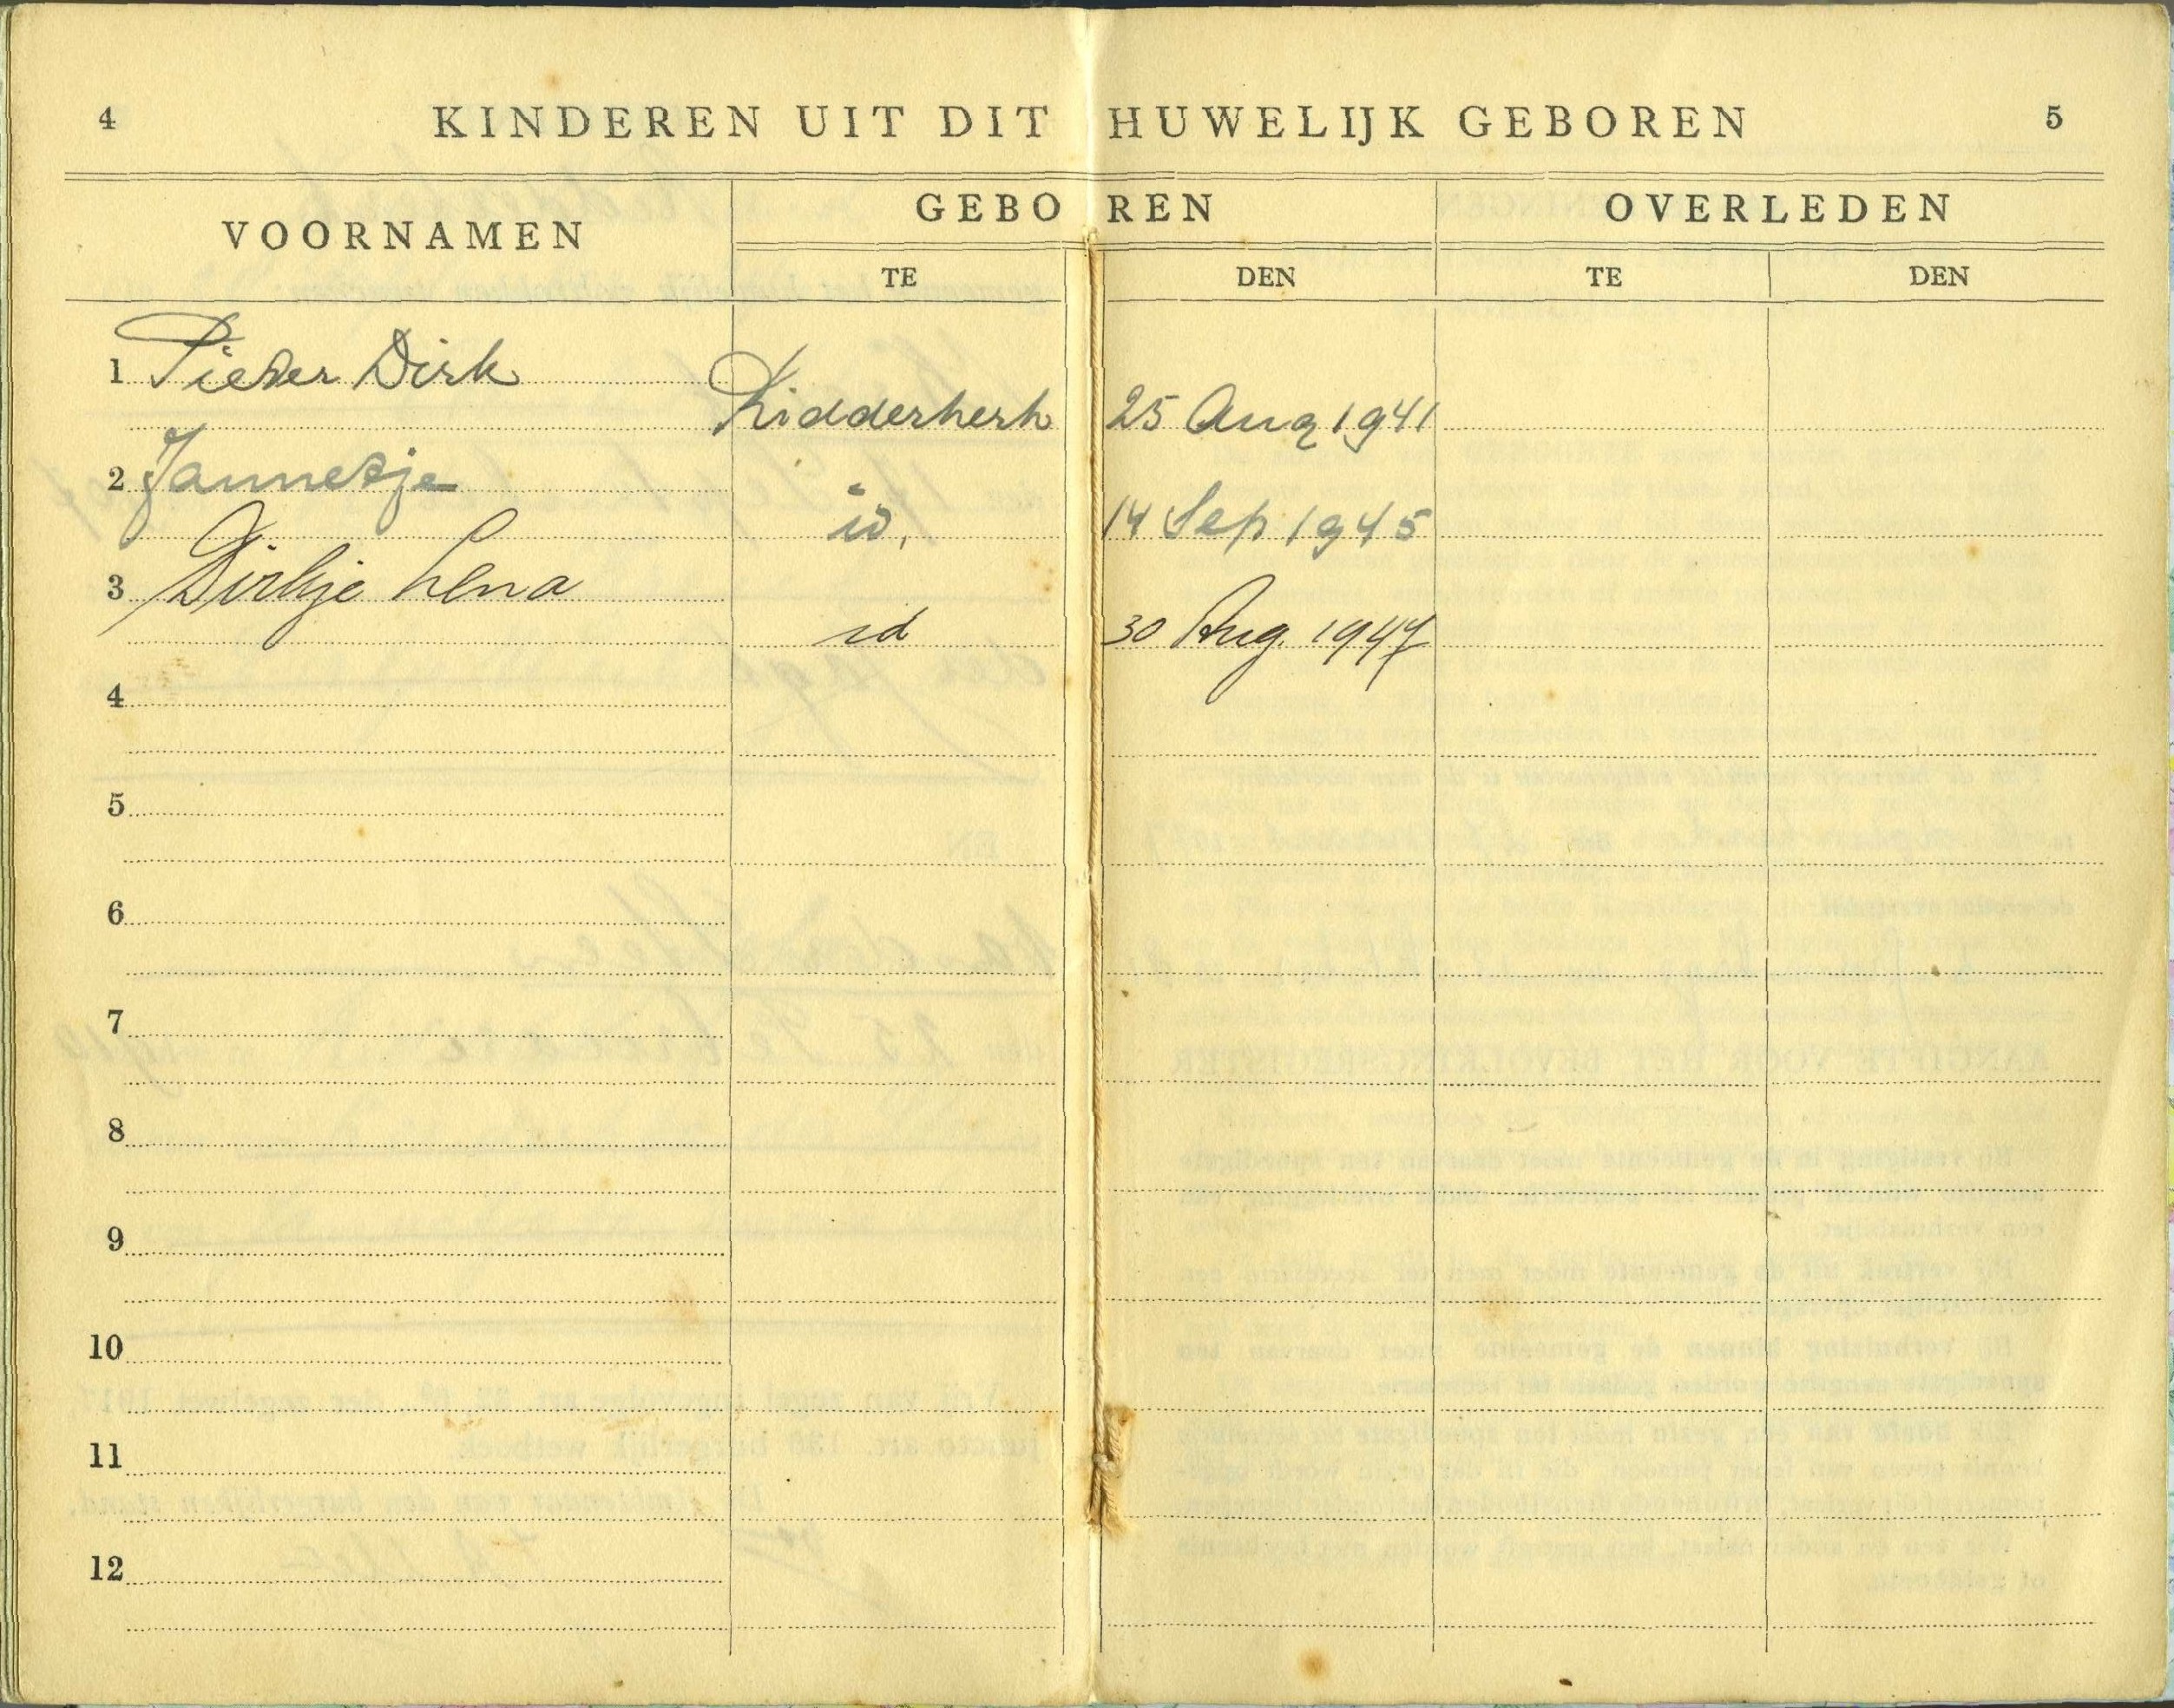 4 KINDEREN UIT DIT HUWELIJK GEBOREN 5
VOORNAMEN GEBOREN OVERLEDEN
TE DEN TE DEN
1 Pieter Dirk
Ridderkerk 25 Aug 1941
2 Jannetje
id, 14 Sep 1945
3 Dirkje Lena
id 30 Aug. 1947
4
5
6
7
8
9
10
11
12